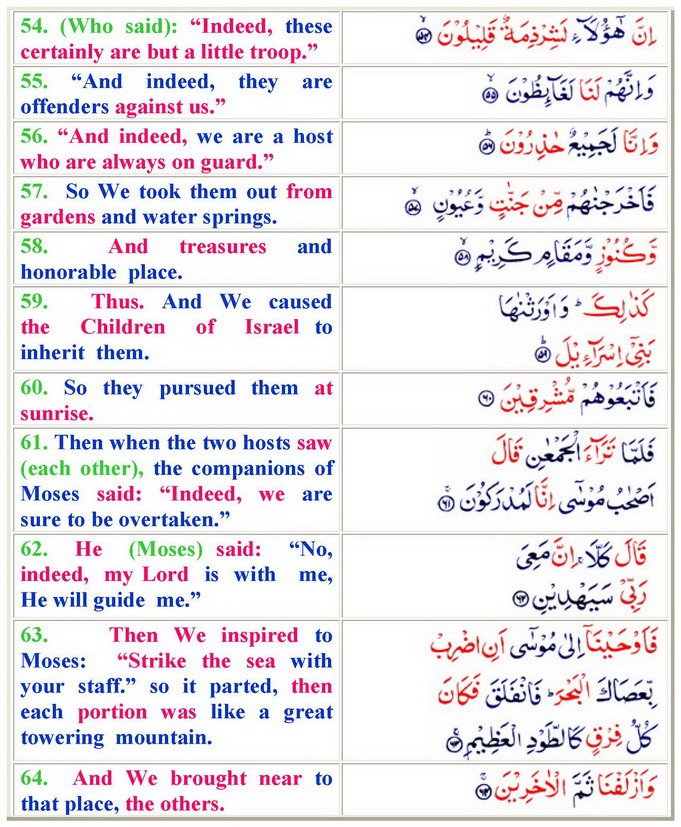 54. (Who said): “Indeed, these
certainly are but a little troop.”
اِنَّ هٰٓؤُلَآءِ لَشِرْذِمَةٌ قَلِيْلُوْنَ ۙ‏﴿۵۴﴾
55. “And indeed, they are
offenders against us.”
وَاِنَّهُمْ لَنَا لَغَآئِظُوْنَ ۙ‏﴿۵۵﴾
56. “And indeed, we are a host
who are always on guard.”
وَاِنَّا لَجَمِيْعٌ حٰذِرُوْنَ ؕ‏﴿۵۶﴾
57. So We took them out from
gardens and water springs.
فَاَخْرَجْنٰهُمْ مِّنْ جَنّٰتٍ وَّعُيُوْنٍ ۙ‏﴿۵۷﴾
58. And treasures and
honorable place.
وَّكُنُوْزٍ وَّمَقَامٍ كَرِيْمٍ ۙ‏﴿۵۸﴾
59. Thus. And We caused
the Children of Israel to
inherit them.
كَذٰلِكَ ؕ وَاَوْرَثْنٰهَا
بَنِىْۤ اِسْرَآءِيْلَ ؕ‏﴿۵۹﴾
60. So they pursued them at
sunrise.
فَاَتْبَعُوْهُمْ مُّشْرِقِيْنَ‏﴿۶۰﴾
61. Then when the two hosts saw
(each other), the companions of
Moses said: “Indeed, we are
sure to be overtaken.”
فَلَمَّا تَرَآءَ الْجَمْعٰنِ قَالَ
اَصْحٰبُ مُوْسٰٓى اِنَّا لَمُدْرَكُوْنَ ۚ‏﴿۶۱﴾
62. He (Moses) said: “No,
indeed, my Lord is with me,
He will guide me.”
قَالَ كَلَّا ۚ اِنَّ مَعِىَ
رَبِّىْ سَيَهْدِيْنِ‏﴿۶۲﴾
63. Then We inspired to
Moses: “Strike the sea with
your staff.” so it parted, then
each portion was like a great
towering mountain.
فَاَوْحَيْنَاۤ اِلٰى مُوْسٰٓى اَنِ اضْرِبْ
بِّعَصَاكَ الْبَحْرَ ؕ فَانْفَلَقَ فَكَانَ
كُلُّ فِرْقٍ كَالطَّوْدِ الْعَظِيْمِ ۚ‏﴿۶۳﴾
64. And We brought near to
that place, the others.
وَاَزْلَفْنَا ثَمَّ الْاٰخَرِيْنَ ۚ‏﴿۶۴﴾